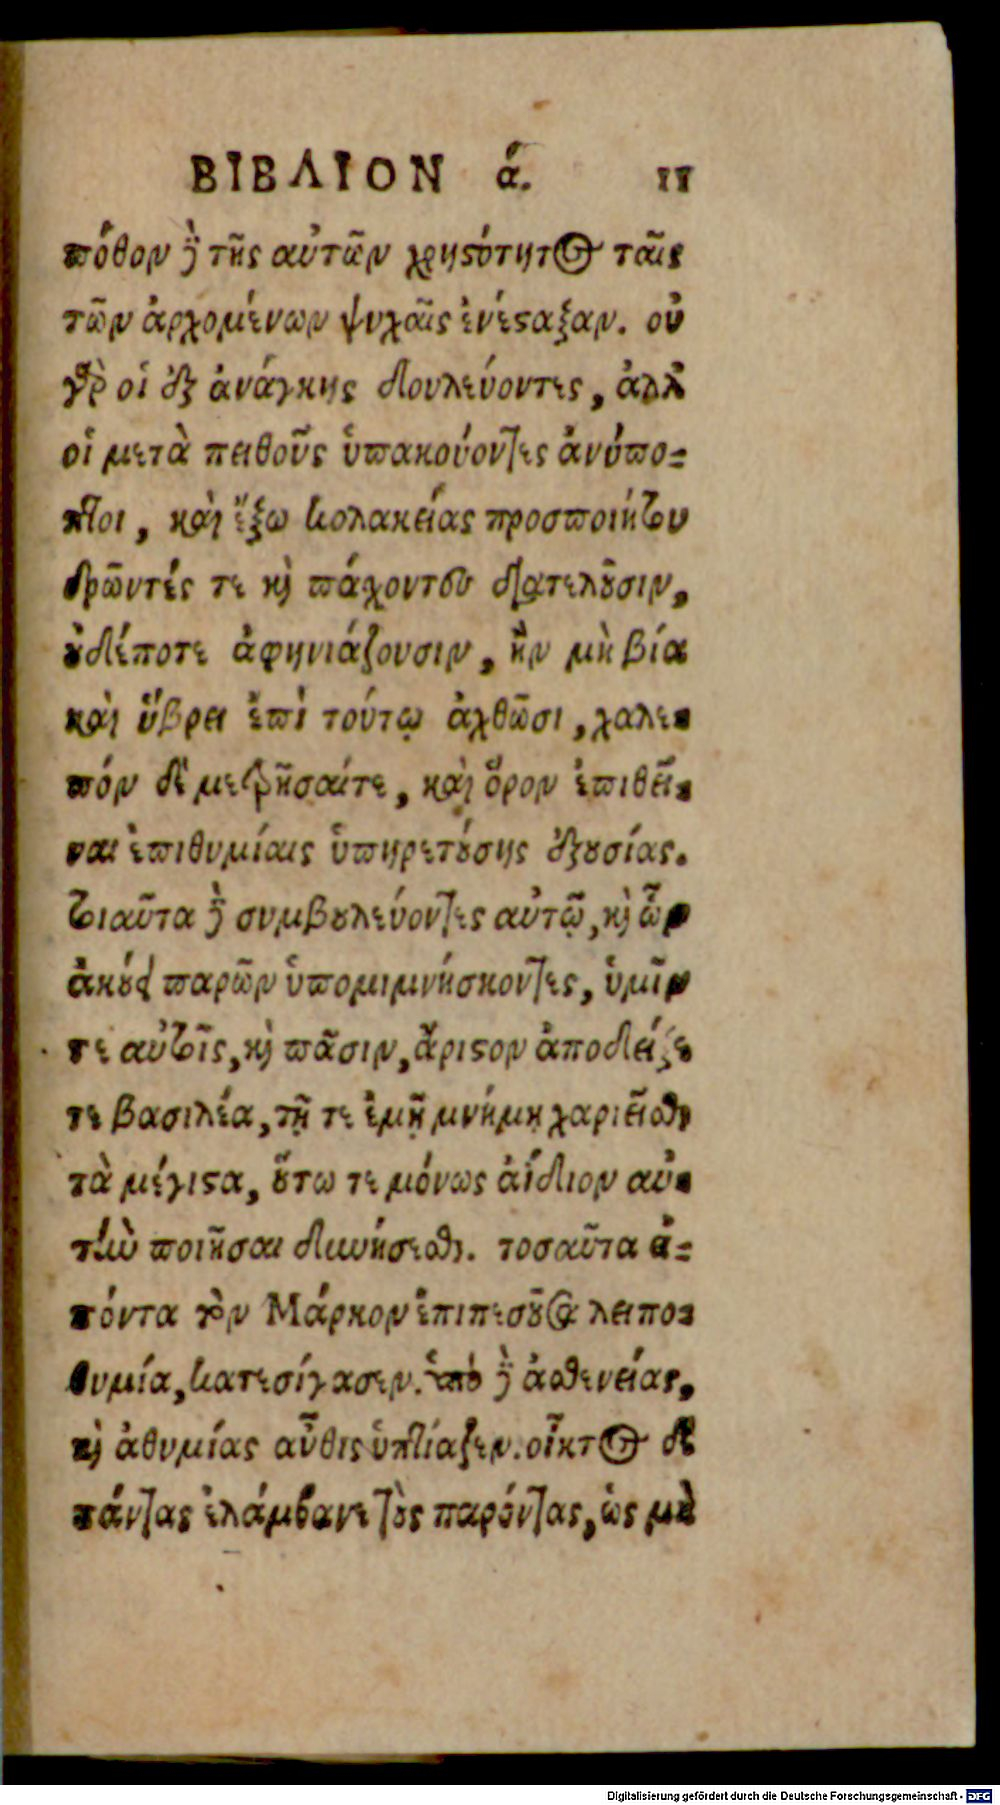 ΒΙΒΛΙΟΝ ά. 11
πόθον ἢ τῆς αὐτῶν χρηϛότητος ταῖς
τῶν ἀρχομένων ψυχαῖς ἐνέϛαξαν. οὐ
γὰρ οἱ ἐξ ἀνάγκης δουλεύοντες, ἀλλ
οἱ μετὰ πειθοῦς ὑπακούοντες ἀνύπο-
πτοι, καὶ ἔξω κολακείας προσποιήτου
δρῶντές τε κὶ πάχοντες διατελοῦσιν,
οὐδέποτε ἀφηνιάζουσιν, ἢν μὴ βία
καὶ ὕβρει ἐπὶ τούτῳ ἀχθῶσι, χαλε-
πόν δὲ μετρῆσαίτε, καὶ ὅρον ἐπιθεῖ-
ναι ἐπιθυμίαις ὑπηρετούσης ἐξουσίας.
τοιαῦτα δὴ συμβουλεύοντες αὐτῷ, κὶ ὧν
ἀκούει παρῶν ὑπομιμνήσκοντες, ὑμῖν
τε αὐτοῖς, κὶ πᾶσιν, ἄριϛον ἀποδείξε
τε βασιλέα, τῇ τε ἐμῇ μνήμῃ χαριεῖσθε
τὰ μέγιϛα, οὕτω τε μόνως ἀΐδιον αὐ-
τὴν ποιῆσαι δυνήσεσθε. τοσαῦτα ἐ-
πόντα τὸν Μάρκον ἐπιπεσοῦσα λειπο-
θυμία, κατεσίγασεν. ὑπὸ δὲ ἀσθενείας,
κὶ ἀθυμίας αὖθις ὑπτίαζεν. οἶκτος δὲ
πάντας ἐλάμβανε τοὺς παρόντας, ὡς μὴ
Digitalisierung gefördert durch die Deutsche Forschungsgemeinschaft - DFG